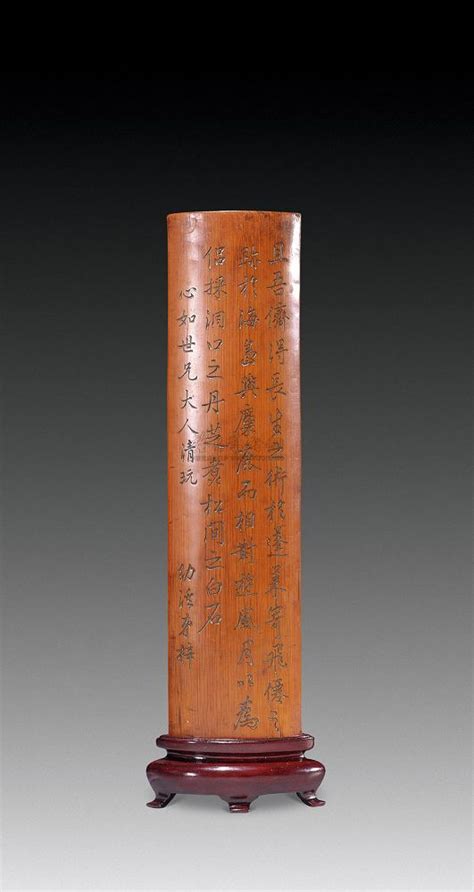 且吾儕得長生之術於蓬萊寄飛僊之
於海與麋鹿而相對風月以為
侶採洞口之丹芝煮松間之白石
心如世兄大人清玩
幼弟梓